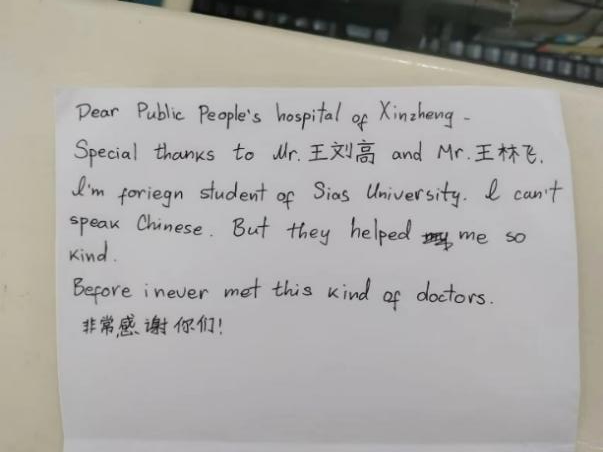 Dear Public People's hospital of Xinzheng -
Special thanks to Mr. 王刘高 and Mr. 王林飞.
I'm foriegn student of Sias University. I can't
speak Chinese. But they helped me so
kind.
Before i never met this kind of doctors.
非常感谢你们!